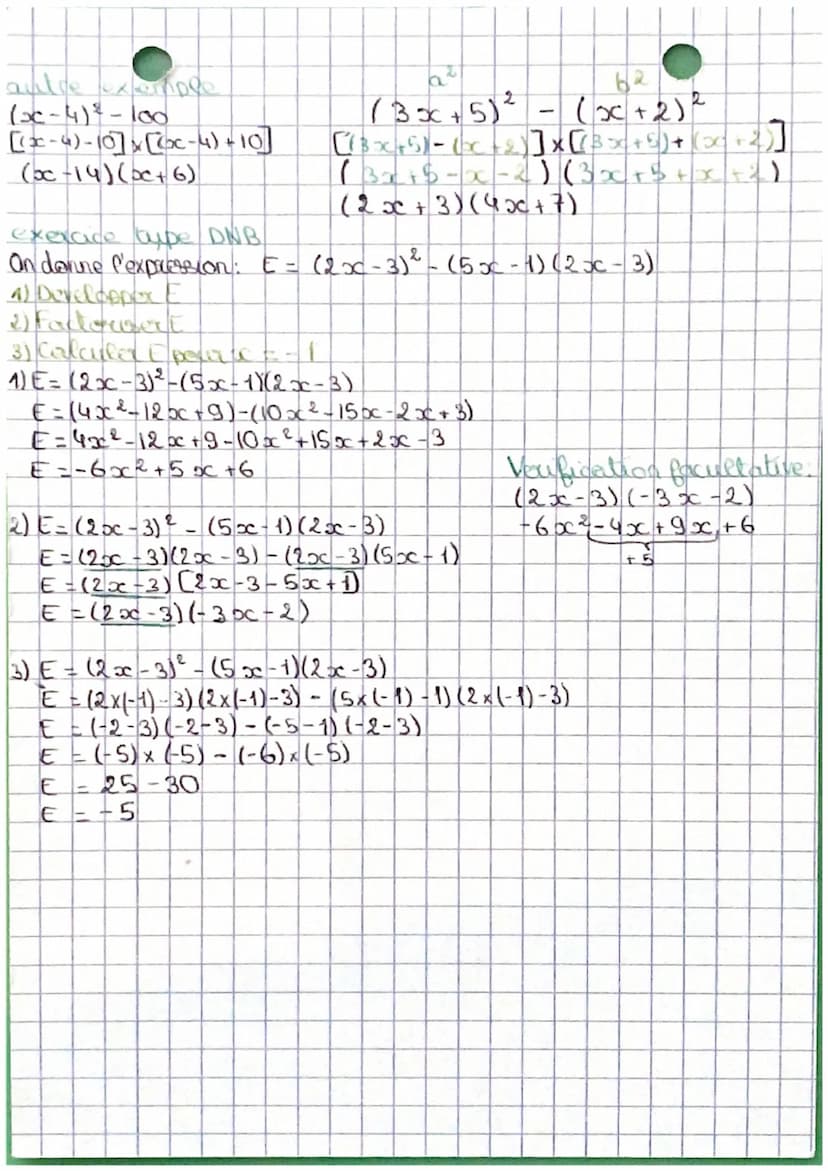 autre exemple
(x-4)² - 100
[(x-4)-10]x[(x-4)+10]
(x-14)(x+6)
a² b²
(3x+5)² - (x+2)²
[(3x+5)-(x+2)]x[(3x+5)+(x+2)]
(3x+5-x-2)(3x+5+x+2)
(2x+3)(4x+7)
exercice type DNB
On donne l'expression: E = (2x-3)² - (5x-1)(2x-3)
1) Developper E
2) Factoriser E
3) Calculer E pour x = -1
1) E = (2x-3)²-(5x-1)(2x-3)
E = (4x²-12x+9)-(10x²-15x-2x+3)
E = 4x²-12x+9-10x²+15x+2x-3
E = -6x²+5x+6
Verification facultative:
(2x-3)(-3x-2)
-6x²-4x+9x+6
+5
2) E = (2x-3)² - (5x-1)(2x-3)
E = (2x-3)(2x-3) - (2x-3)(5x-1)
E = (2x-3)[2x-3-5x+1]
E = (2x-3)(-3x-2)
3) E = (2x-3)² - (5x-1)(2x-3)
E = (2x(-1)-3)(2x(-1)-3) - (5x(-1)-1)(2x(-1)-3)
E = (-2-3)(-2-3)-(-5-1)(-2-3)
E = (-5)x(-5)-(-6)x(-5)
E = 25-30
E = -5